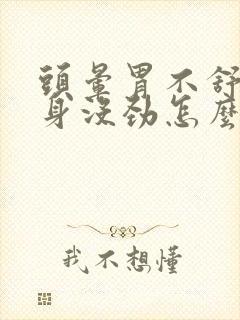 頭暈胃不舒
身沒勁怎麼
我不想懂